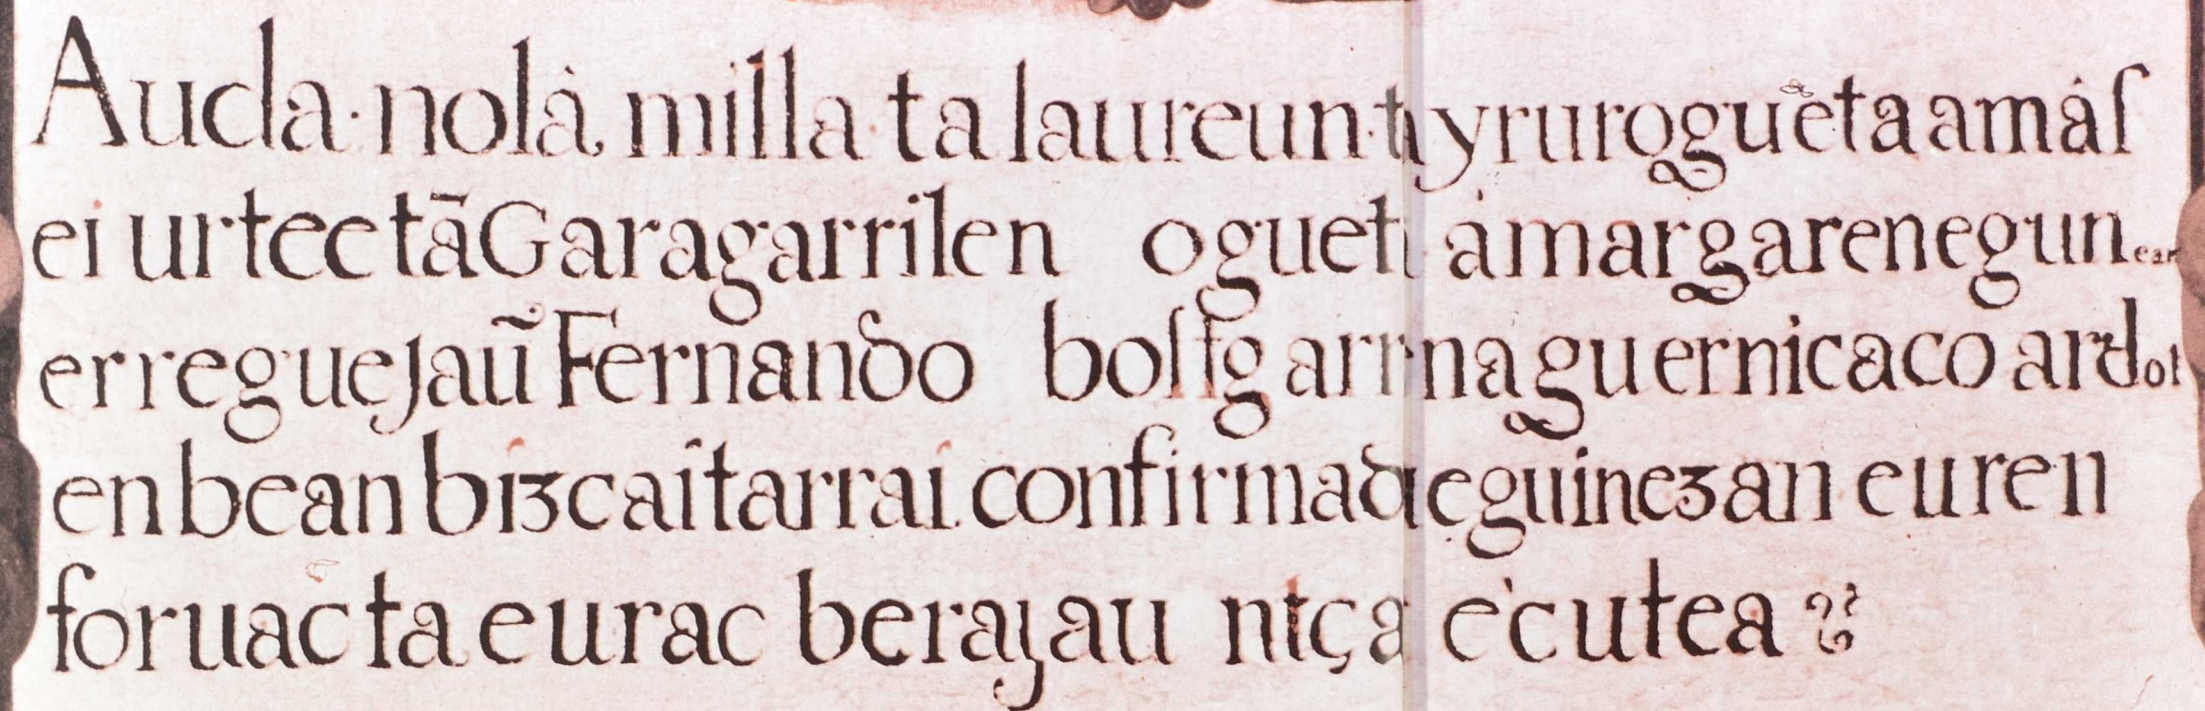 Aucla nola milla ta laureun ti yruroguèta amaſ
ei urteetā Garagarrilen oguet amargarren egunean
erregue Jaū Fernando boſtgarrena guernicaco ardot
en bean bizcaitarrai confirmadu eguinezan euren
foruac ta eurac bera jau ntça ecutea